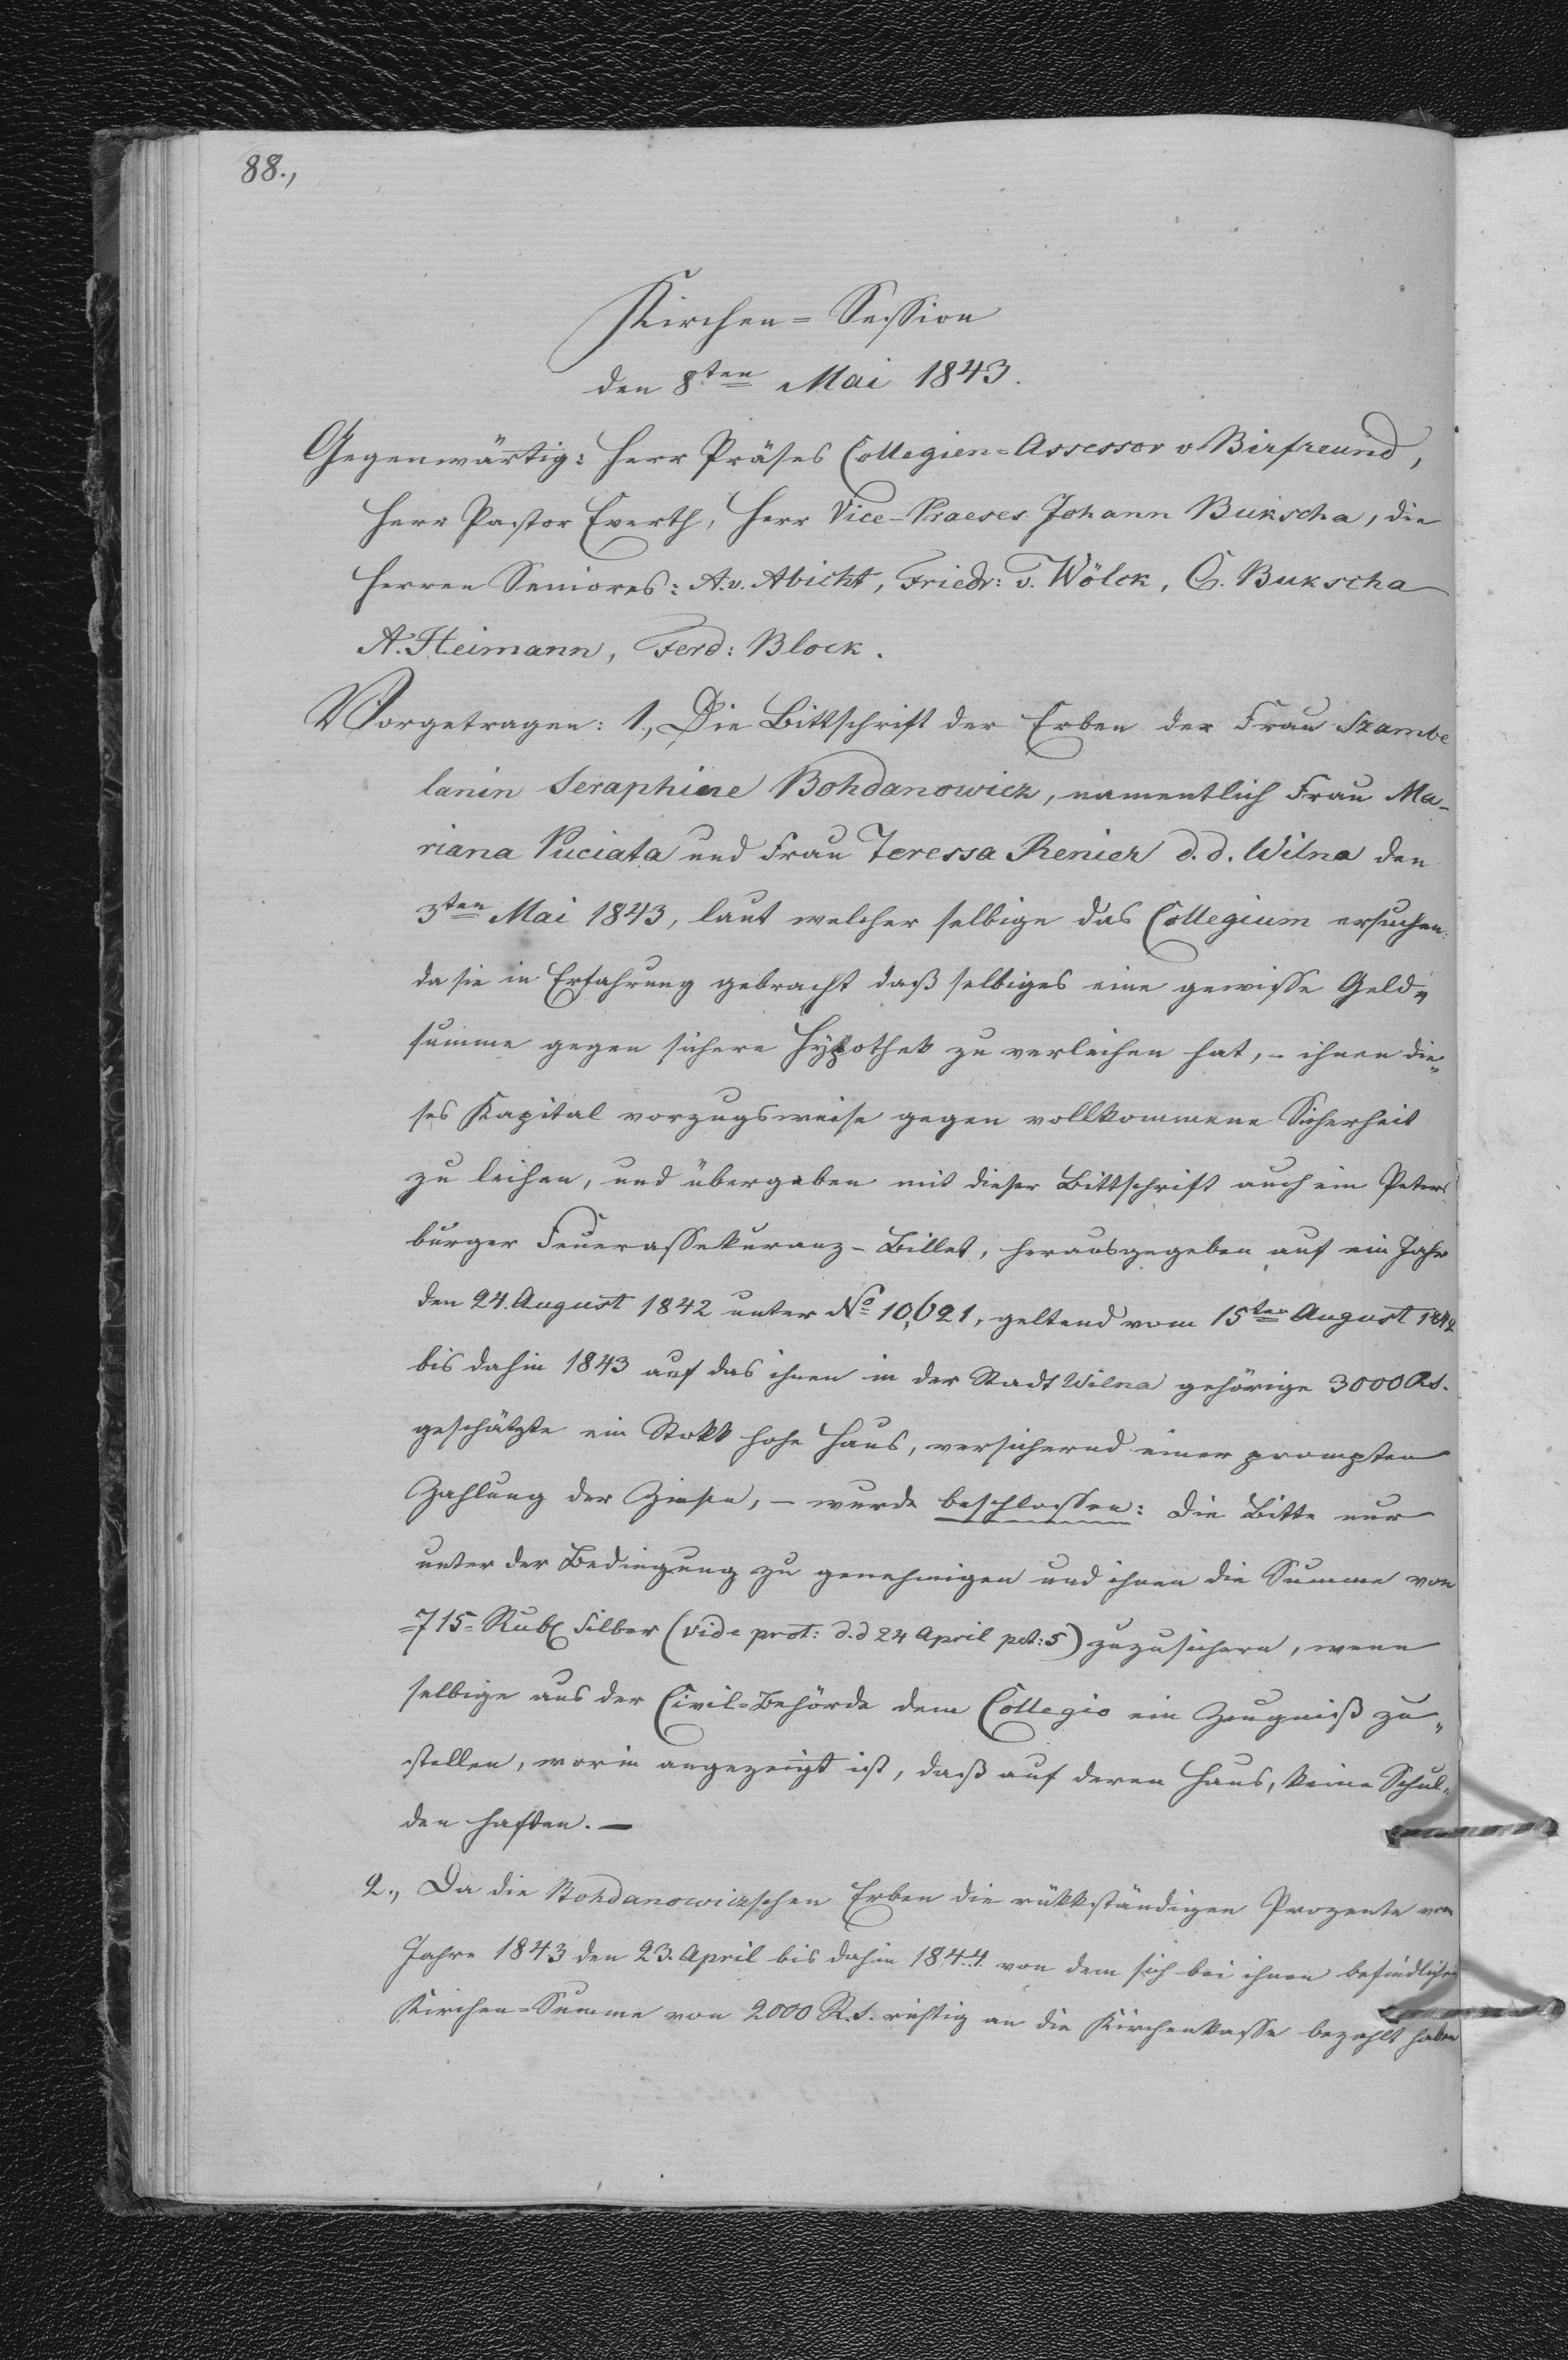 88.,
Kirchen=Session
den 8ten Mai 1843.
Gegenwärtig: Herr Präses Collegien=Assessor v Birfreund,
Herr Pastor Everth, Herr Vice-Praeses Johann Bukscha, die
Herren Seniores: A. v. Abicht, Friedr: v. Wölck, G. Bukscha
A. Heimann, Ferd: Block.
Vorgetragen: 1., Die Bittschrift der Erben der Frau Szambe
lanin Seraphine Bohdanowicz, namentlich Frau Ma-
riana Puciata und Frau Teressa Renier d. d. Wilna den
3ten Mai 1843, laut welcher selbige das Collegium ersuchen:
da sie in Erfahrung gebracht daß selbiges eine gewisse Geld=
summe gegen sichere Hypothek zu verleihen hat, - ihnen die=
ses Kapital vorzugsweise gegen vollkommene Sicherheit
zu leihen, und übergaben mit dieser Bittschrift auch ein Peters
burger Feuerassekuranz-Billet, herausgegeben auf ein Jahr
den 24. August 1842 unter No 10,621, geltend vom 15ten August 1842
bis dahin 1843 auf das ihnen in der Stadt Wilna gehörige 3000 Rs.
geschätzte ein Stokk hohe Haus, versichernd einer prompten
Zahlung der Zinsen, - wurde beschlossen: Die Bitte nur
unter der Bedingung zu genehmigen und ihnen die Summe von
=715= Rub Silber (vide prot: d. d 24 April pct: 5) zuzusichern, wenn
selbige aus der Civil=Behörde dem Collegio ein Zeugniß zu=
stellen, worin angezeigt ist, daß auf deren Haus, keine Schul=
den haften. -
2., Da die Bohdanowiczschen Erben die rükkständigen Prozente vom
Jahre 1843 den 23. April bis dahin 1844 von dem sich bei ihnen befindlichen
Kirchen=Summe von 2000 R. s. richtig an die Kirchenkasse bezahlt haben